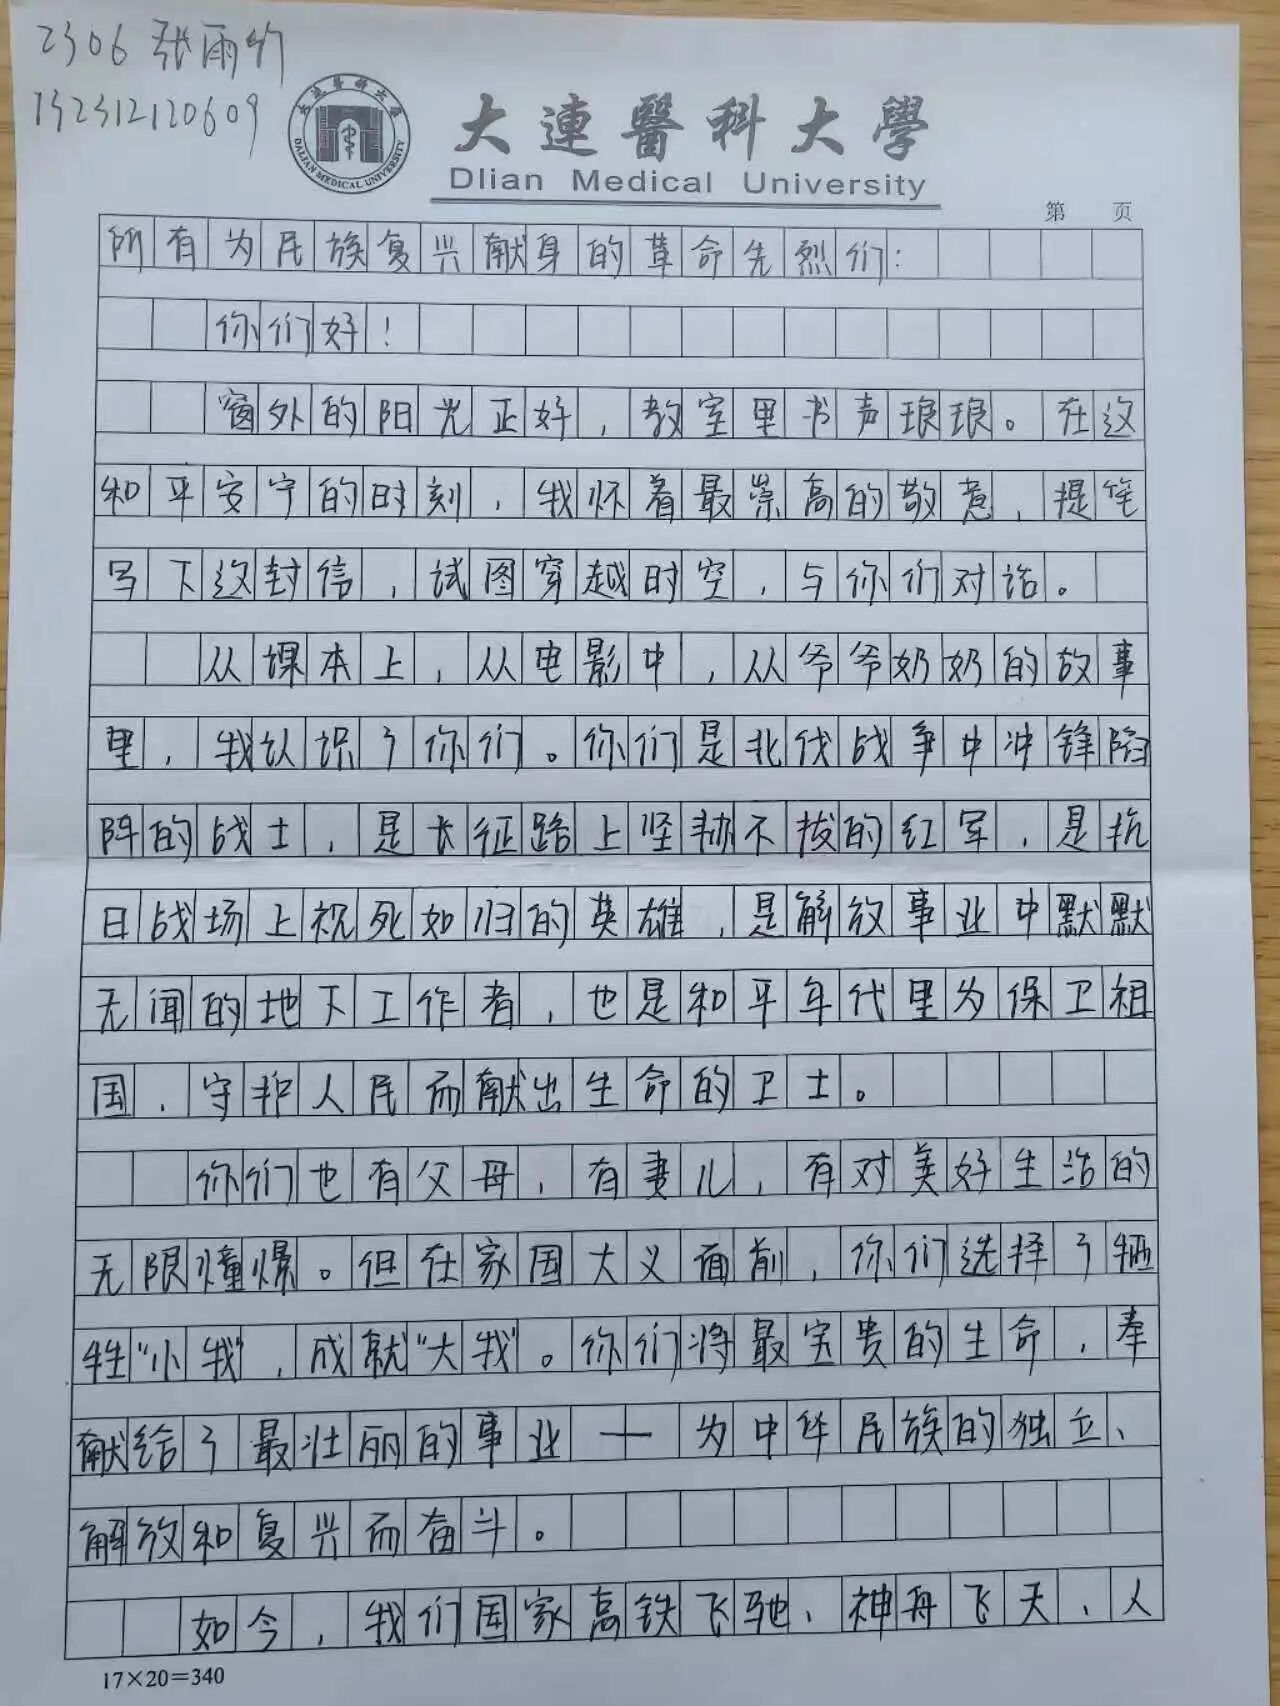 2306 张雨竹
13231212060９
大連醫科大學
DALIAN MEDICAL UNIVERSITY
大連醫科大學
Dlian Medical University
第 页
所有为民族复兴献身的革命先烈们：
你们好！
窗外的阳光正好，教室里书声琅琅。在这
和平安宁的时刻，我怀着最崇高的敬意，提笔
写下这封信，试图穿越时空，与你们对话。
从课本上，从电影中，从爷爷奶奶的故事
里，我认识了你们。你们是北伐战争中冲锋陷
阵的战士，是长征路上坚韧不拔的红军，是抗
日战场上视死如归的英雄，是解放事业中默默
无闻的地下工作者，也是和平年代里为保卫祖
国，守护人民而献出生命的卫士。
你们也有父母，有妻儿，有对美好生活的
无限憧憬。但在家国大义面前，你们选择了牺
牲“小我”，成就“大我”。你们将最宝贵的生命，奉
献给了最壮丽的事业——为中华民族的独立、
解放和复兴而奋斗。
如今，我们国家高铁飞驰、神舟飞天、人
17×20=340